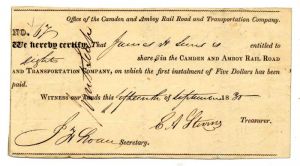 Office of the Camden and Amboy Rail Road and Transportation Company.
No. 67
We hereby certify, That James is entitled
to eight share s in the CAMDEN AND AMBOY RAIL ROAD
AND TRANSPORTATION COMPANY, on which the first instalment of Five Dollars has been
paid.
WITNESS our hands fifteenth of September 1830
Treasurer.
Secretary.